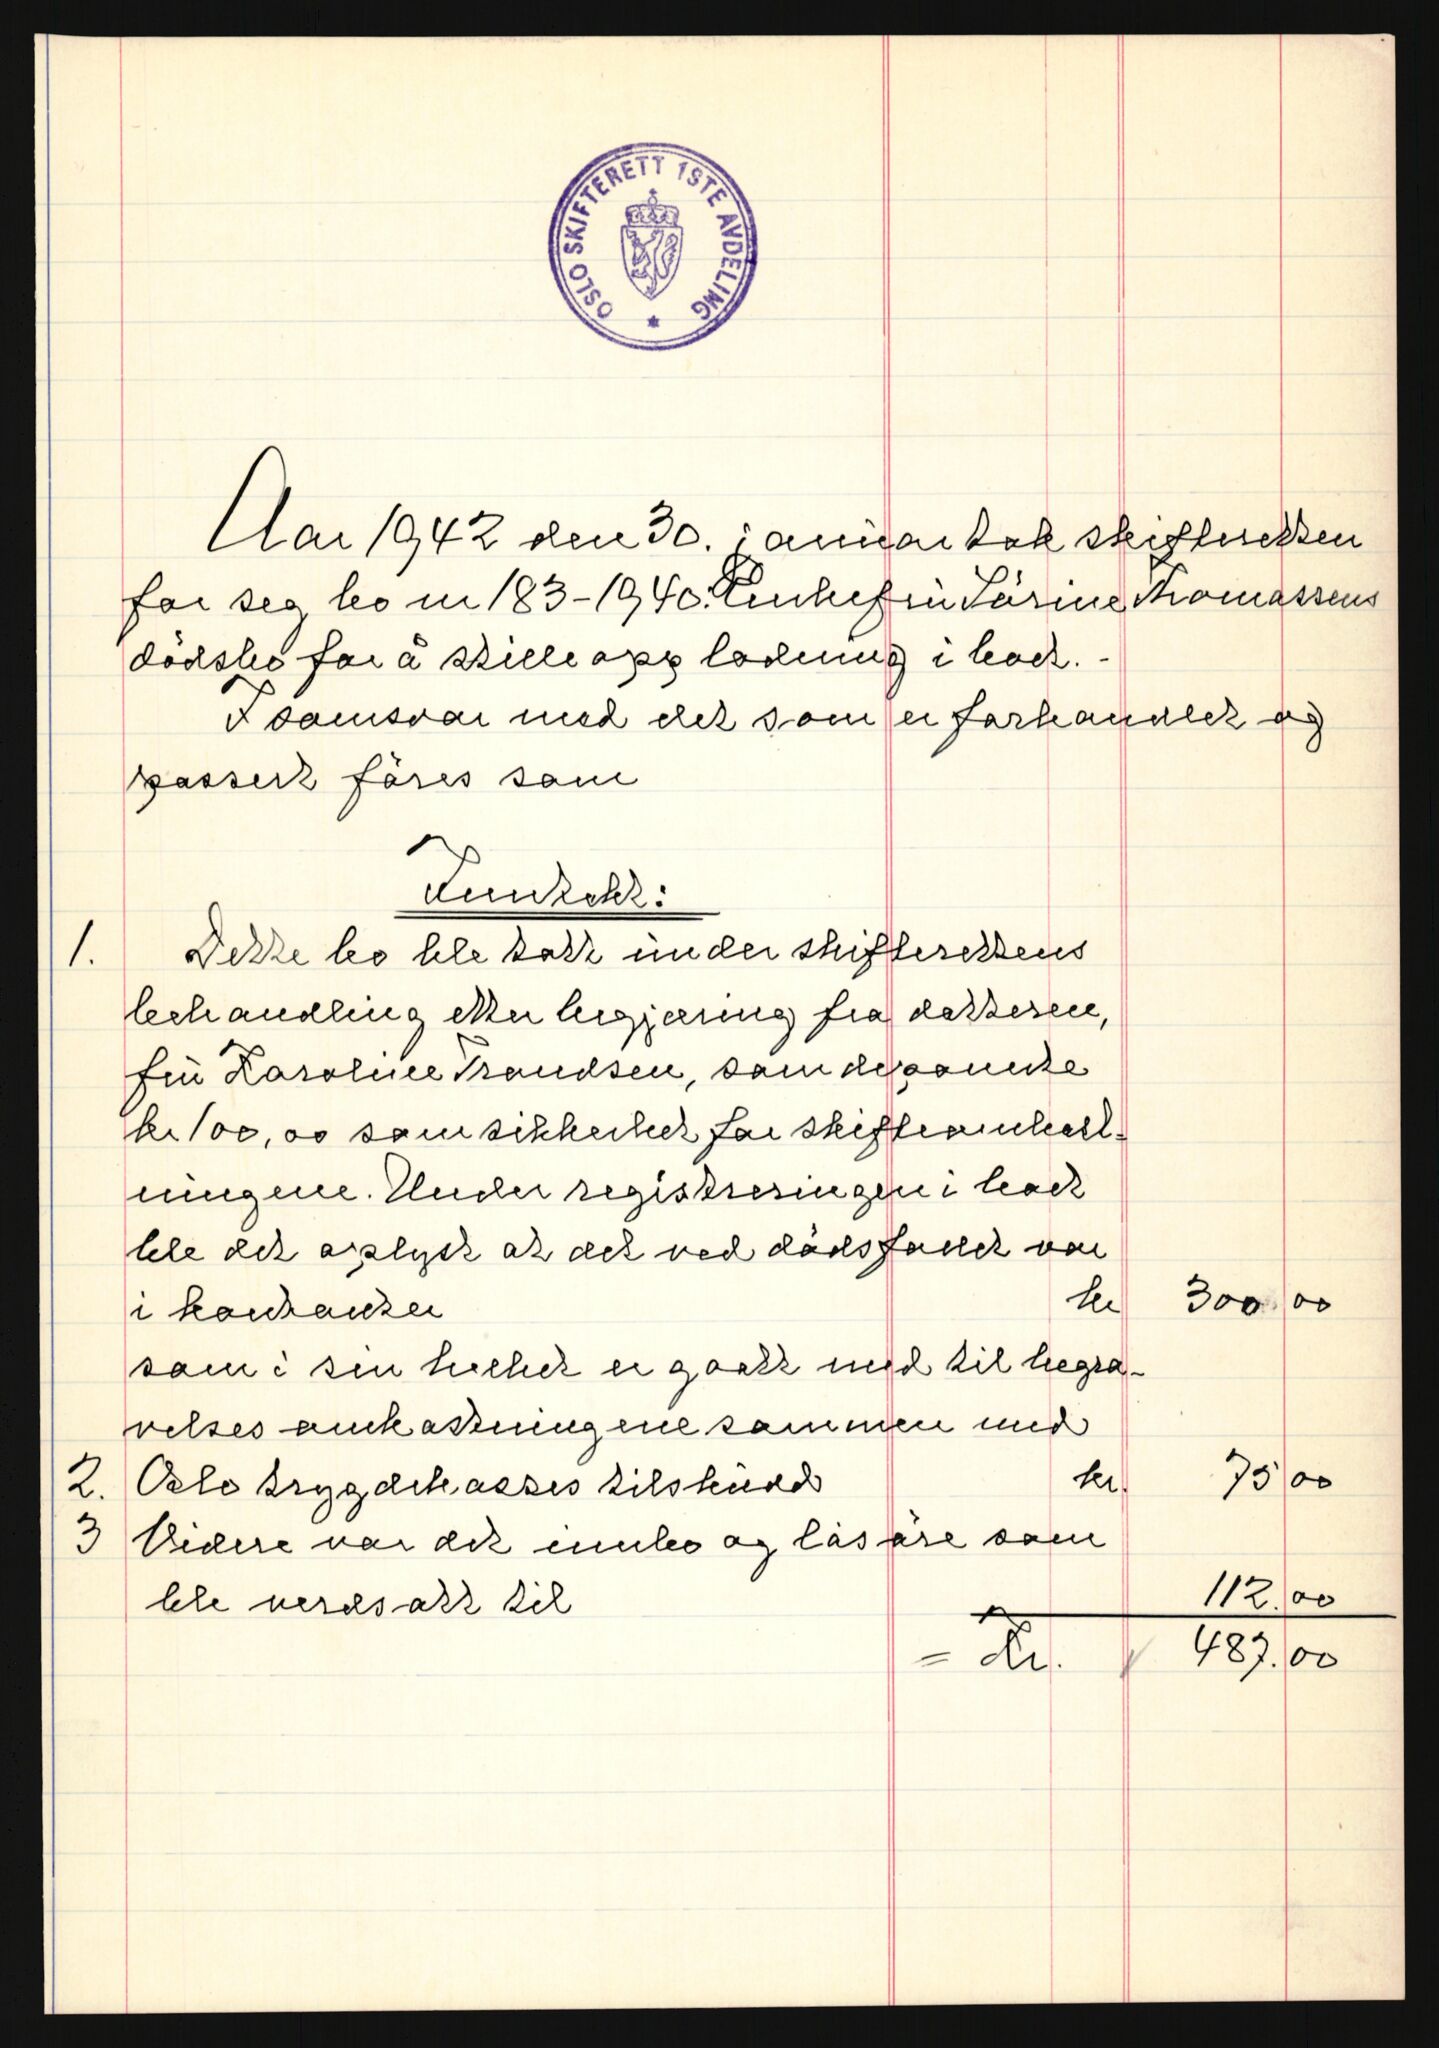 OSLO SKIFTERETT 1STE AVDELING
Aar 1942 den 30. januar tok skifteretten
for seg bo nr 183-1940: Enkefru Sörine Thomassens
dödsbo for å stille opp lodning i boet. -
I samsvar med det som er forhandlet og
passert föres som
Inntekt:
1. Dette bo ble tatt under skifterettens
behandling etter begjæring fra datteren,
fru Karoline Trondsen, som deponerte
kr 100,00 som sikkerhet for skifteomkost-
ningene. Under registreringen i boet
ble det oplyst at det ved dödsfallet var
i kontanter kr 300 00
som i sin helhet er gaatt med til begra-
velsesomkostningene sammen med
2. Oslo trygdekasses tilskudd kr. 75 00
3 Videre var det innbo og lösöre som
ble verdsatt til 112.00
= Kr. 487.00